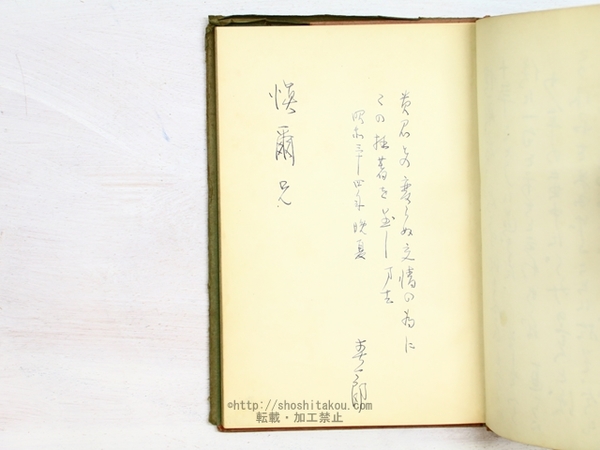 貴君との変らぬ交情の為に
この拙著を呈し
昭和三十四年晩夏
壽一郎
慎爾兄
©http://shoshitakou.com/
転載・加工禁止